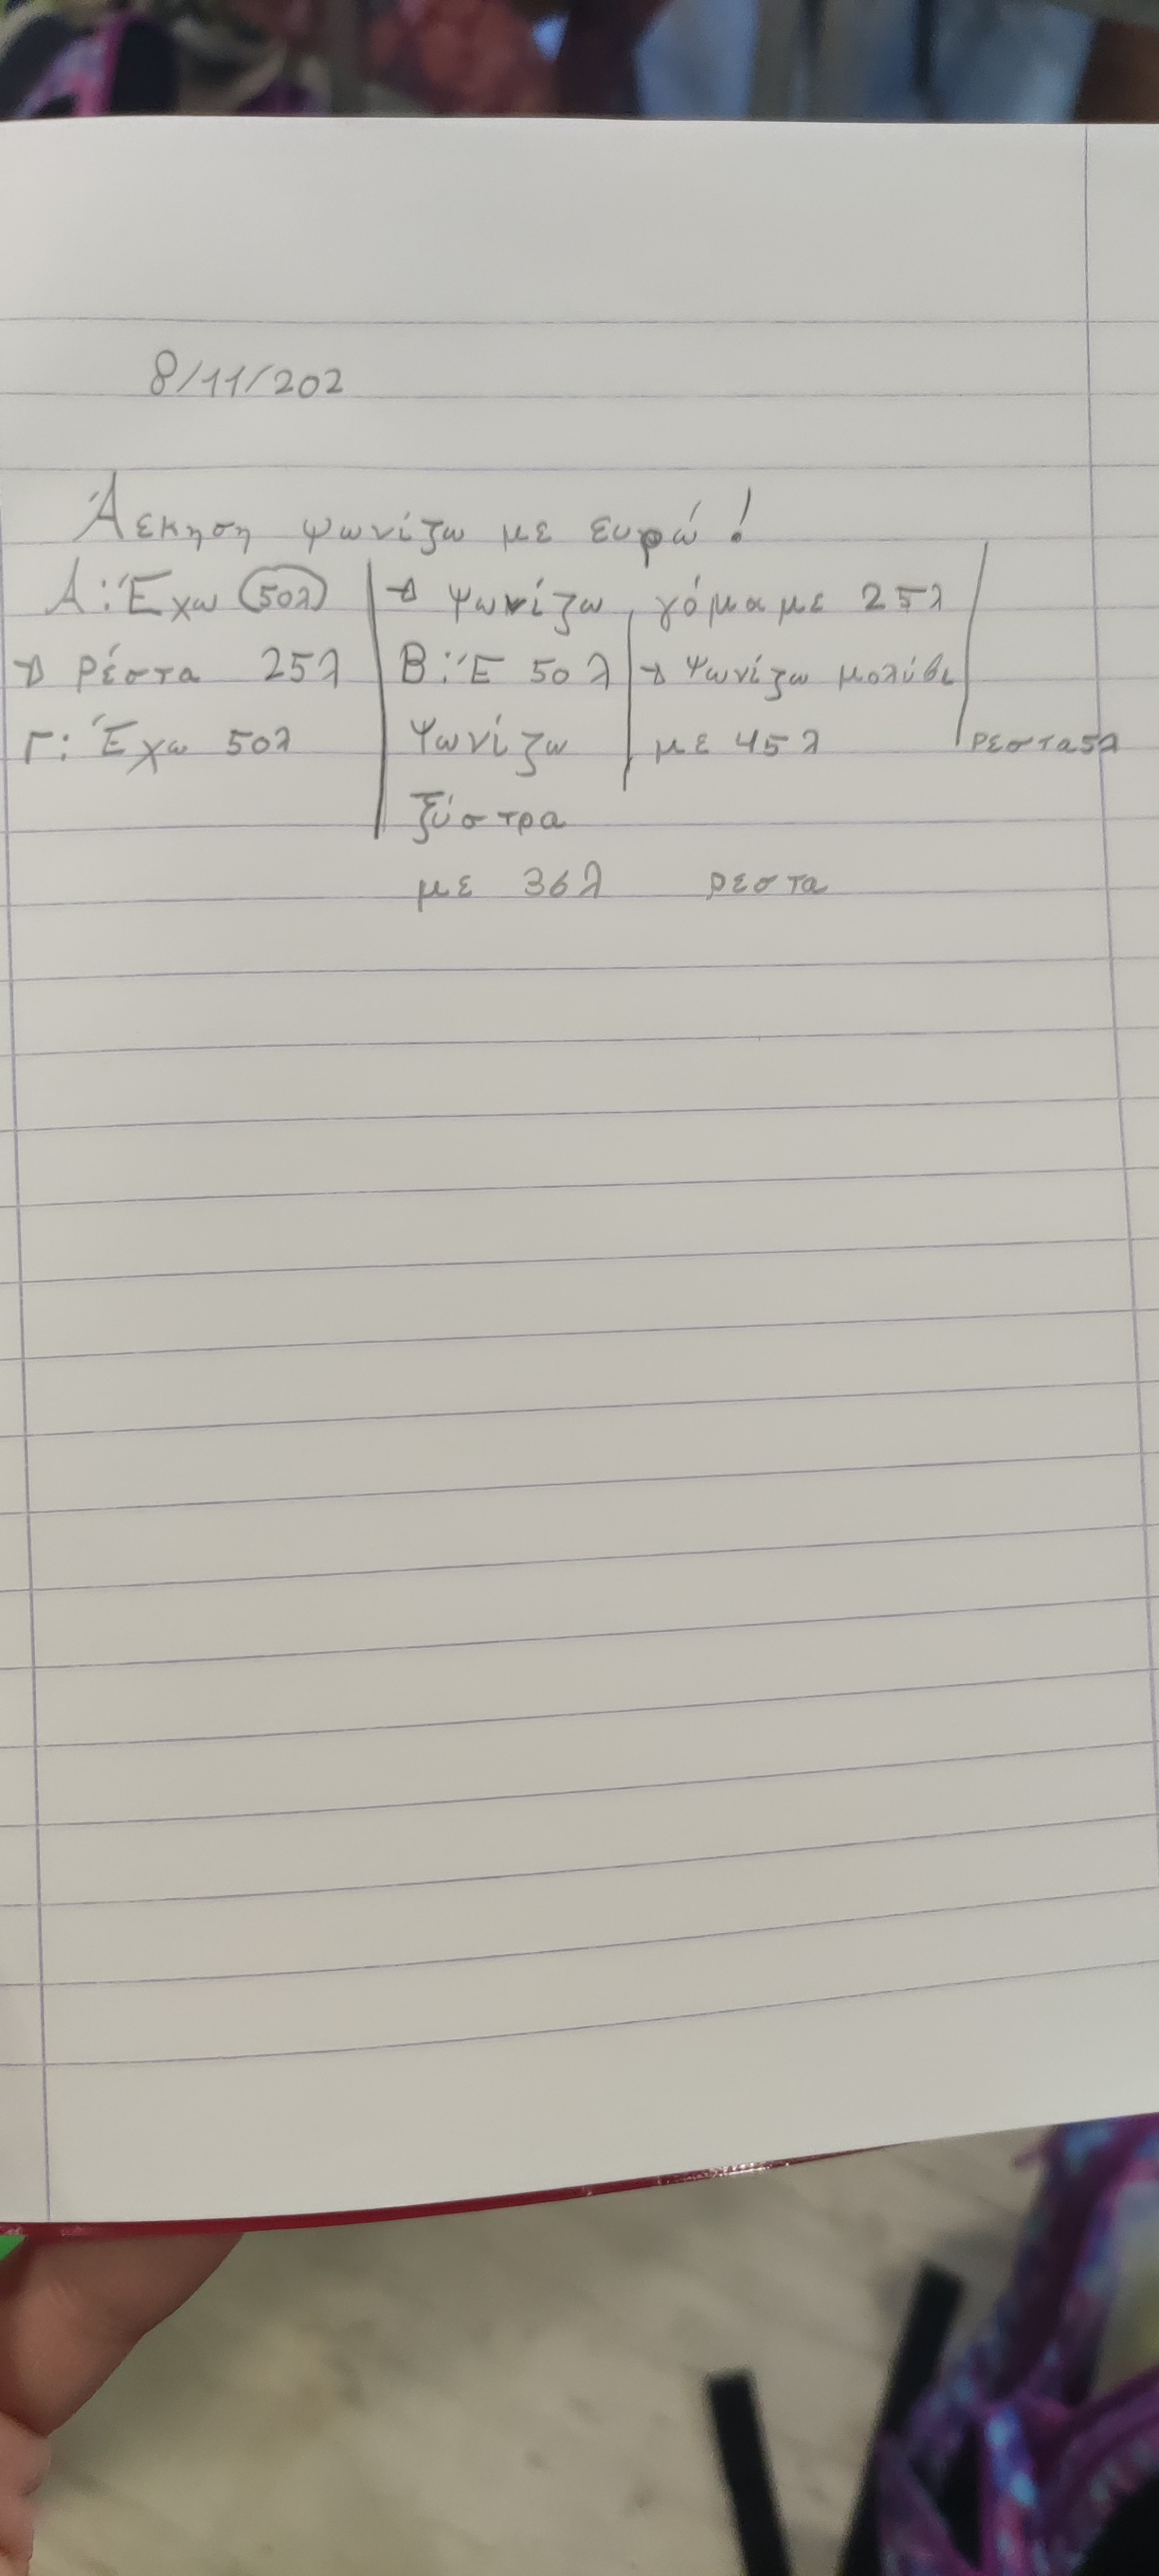 8/11/202
Άεκηση ψωνίζω με ευρώ!
Α: Έχω 50λ → ψωνίζω, γόμα με 25λ
→ ρέστα 25λ Β: Έ 50λ → ψωνίζω μολύβι
Γ: Έχω 50λ ψωνίζω με 45λ ρεστα5λ
ξύστρα
με 36λ ρεστα